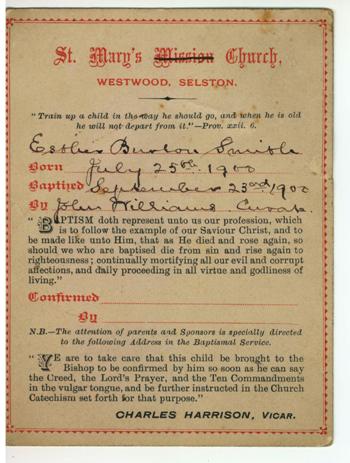 St. Mary's Mission Church,
WESTWOOD, SELSTON.
"Train up a child in the way he should go, and when he is old
he will not depart from it."—Prov. xxii. 6.
Esther Burton Smith
Born July 25th 1900
Baptized September 23rd 1900
By John Williams, Curate.
"BAPTISM doth represent unto us our profession, which
is to follow the example of our Saviour Christ, and to
be made like unto Him, that as He died and rose again, so
should we who are baptised die from sin and rise again to
righteousness; continually mortifying all our evil and corrupt
affections, and daily proceeding in all virtue and godliness
of living."
Confirmed
By
N.B.—The attention of parents and Sponsors is specially directed
to the following Address in the Baptismal Service.
"YE are to take care that this child be brought to the
Bishop to be confirmed by him so soon as he can say
the Creed, the Lord's Prayer, and the Ten Commandments
in the vulgar tongue, and be further instructed in the Church
Catechism set forth for that purpose."
CHARLES HARRISON, VICAR.